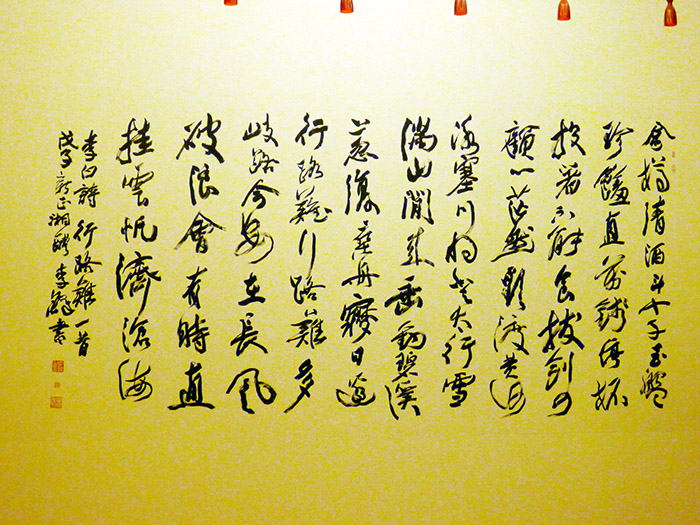 金樽清酒斗十千玉盤
珍饈直萬錢停杯
投箸不能食拔劍四
顧心茫然欲渡黃河
冰塞川將登太行雪
滿山閒來垂釣碧溪
忽復乘舟夢日邊
行路難行路難多
岐路今安在長風
破浪會有時直
挂雲帆濟滄海
李白詩行路難一首
戊子新正湘李書